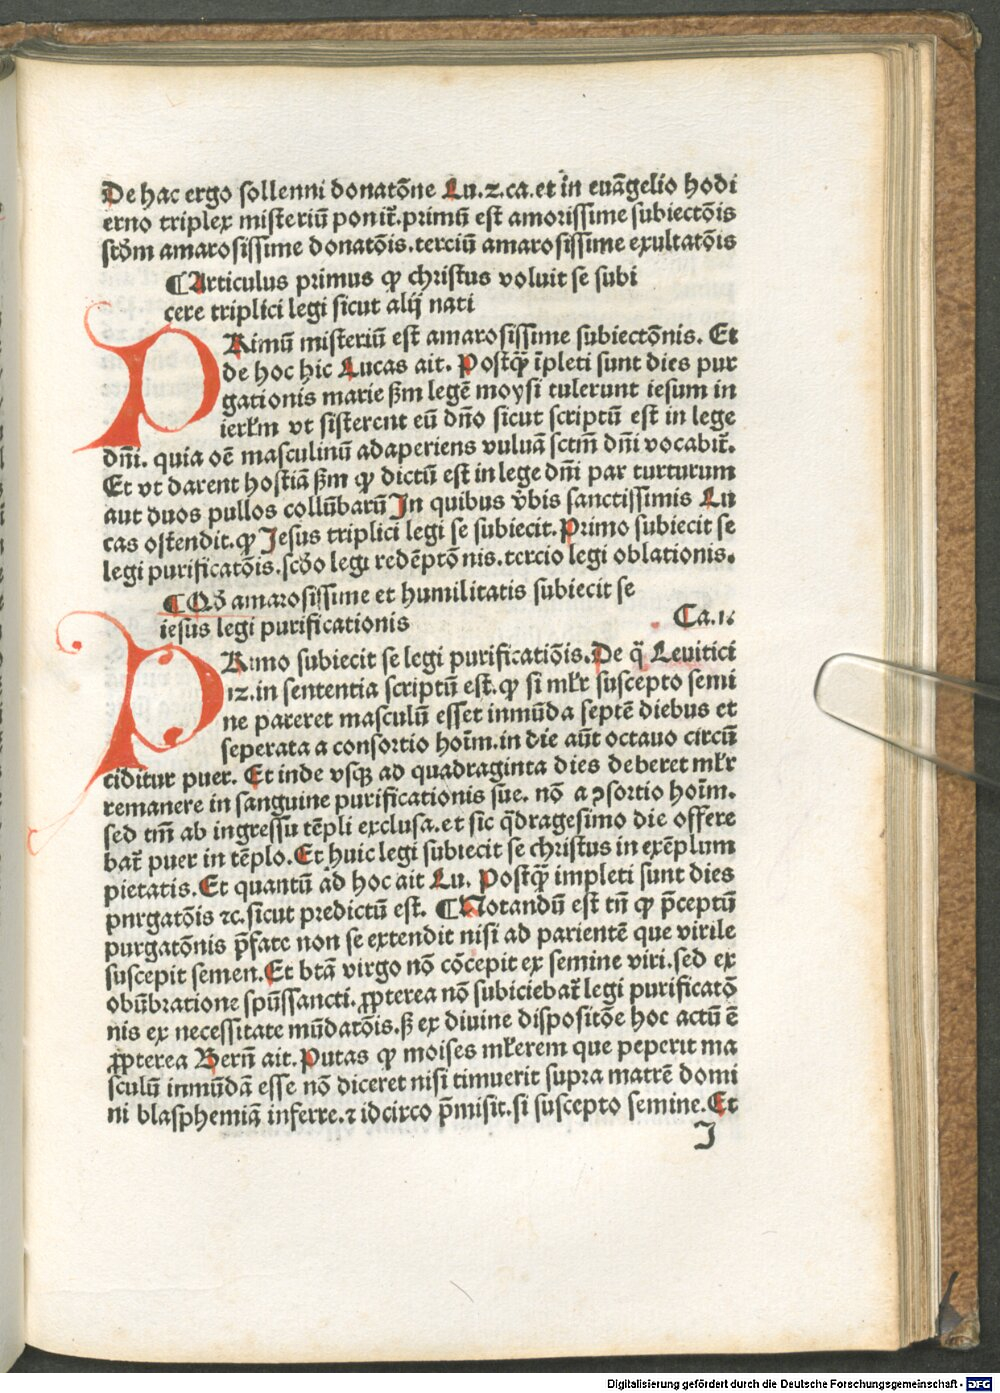 De hac ergo sollenni donatōne Lu.2.ca.et in euāgelio hodi
erno triplex misteriū ponit̄.primū est amorissime subiectōis
scd̄m amarosissime donatōis.terciū amarosissime exultatōis
¶Articulus primus ꝙ christus voluit se subi
cere triplici legi sicut alij nati
PRimū misteriū est amarosissime subiectōnis. Et
de hoc hic Lucas ait. Postꝙ̄ īpleti sunt dies pur
gationis marie ẜm legē moysi tulerunt iesum in
ierł̄m vt sisterent eū dn̄o sicut scriptū est in lege
dn̄i. quia oē masculinū adaperiens vuluā sctm̄ dn̄i vocabit̄.
Et vt darent hostiā ẜm ꝙ dictū est in lege dn̄i par turturum
aut duos pullos collūbarū In quibus v̄bis sanctissimis Lu
cas ostendit.ꝙ Jesus triplici legi se subiecit.Primo subiecit se
legi purificatōis.scd̄o legi redēptōnis.tercio legi oblationis.
¶Qd̄ amarosissime et humilitatis subiecit se
iesus legi purificationis Ca.1.
PRimo subiecit se legi purificatiōis.De q̄ Leuitici
12.in sententia scriptū est.ꝙ si mł̄r suscepto semi
ne pareret masculū esset inmūda septē diebus et
seperata a consortio hoīm.in die aūt octauo circū
ciditur puer. Et inde vsqꝫ ad quadraginta dies deberet mł̄r
remanere in sanguine purificationis sue. nō a ꝯsortio hoīm.
sed tm̄ ab ingressu tēpli exclusa.et sic q̄dragesimo die offere
bat̄ puer in tēplo.Et huic legi subiecit se christus in exēplum
pietatis.Et quantū ad hoc ait Lu. Postꝙ̄ impleti sunt dies
pnrgatōis ꝛc.sicut predictū est. ¶Notandū est tn̄ ꝙ p̄ceptū
purgatōnis p̄fate non se extendit nisi ad parientē que virile
suscepit semen.Et btā virgo nō cōcepit ex semine viri.sed ex
obūbratione spūssancti.ꝓpterea nō subiciebat̄ legi purificatō
nis ex necessitate mūdatōis.ẜ ex diuine dispositōe hoc actū ē
ꝓpterea Bern̄ ait.Putas ꝙ moises mł̄erem que peperit ma
sculū inmūdā esse nō diceret nisi timuerit supra matrē domi
ni blasphemiā inferre.ꝛ idcirco p̄misit.si suscepto semine.Et
J
Digitalisierung gefördert durch die Deutsche Forschungsgemeinschaft - DFG